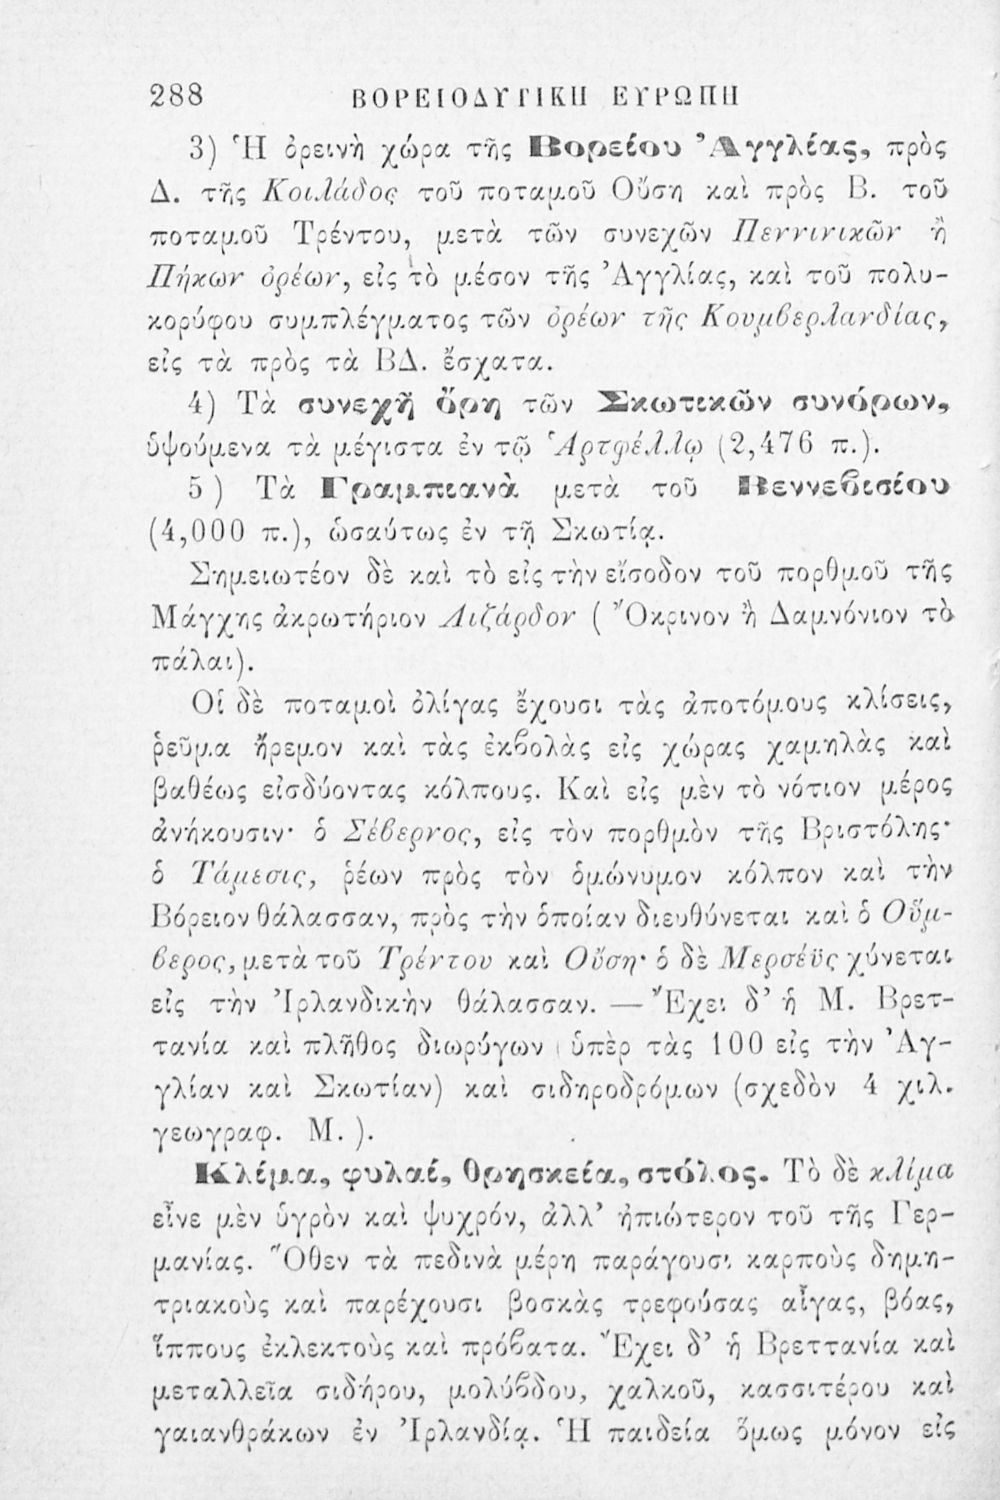 288 ΒΟΡΕΙΟΔΥΤΙΚΗ ΕΥΡΩΠΗ
3) Ἡ ὀρεινὴ χώρα τῆς Βορείου Ἀγγλίας, πρὸς
Δ. τῆς Κοιλάδος τοῦ ποταμοῦ Οὔση καὶ πρὸς Β. τοῦ
ποταμοῦ Τρέντου, μετὰ τῶν συνεχῶν Πεννινικῶν ἢ
Πήκων ὀρέων, εἰς τὸ μέσον τῆς Ἀγγλίας, καὶ τοῦ πολυ-
κορύφου συμπλέγματος τῶν ὀρέων τῆς Κουμβερλανδίας,
εἰς τὰ πρὸς τὰ ΒΔ. ἔσχατα.
4) Τὰ συνεχῆ ὄρη τῶν Σκωτικῶν συνόρων,
ὑψούμενα τὰ μέγιστα ἐν τῷ Ἁρτφέλλῳ (2,476 π.).
5) Τὰ Γραμπιανὰ μετὰ τοῦ Βεννεβισίου
(4,000 π.), ὡσαύτως ἐν τῇ Σκωτίᾳ.
Σημειωτέον δὲ καὶ τὸ εἰς τὴν εἴσοδον τοῦ πορθμοῦ τῆς
Μάγχης ἀκρωτήριον Λιζάρδον (Ὄκρινον ἢ Δαμνόνιον τὸ
πάλαι).
Οἱ δὲ ποταμοὶ ὀλίγας ἔχουσι τὰς ἀποτόμους κλίσεις,
ῥεῦμα ἤρεμον καὶ τὰς ἐκβολὰς εἰς χώρας χαμηλὰς καὶ
βαθέως εἰσδύοντας κόλπους. Καὶ εἰς μὲν τὸ νότιον μέρος
ἀνήκουσιν· ὁ Σέβερνος, εἰς τὸν πορθμὸν τῆς Βριστόλης·
ὁ Τάμεσις, ῥέων πρὸς τὸν ὁμώνυμον κόλπον καὶ τὴν
Βόρειον θάλασσαν, πρὸς τὴν ὁποίαν διευθύνεται καὶ ὁ Οὕμ-
βερος, μετὰ τοῦ Τρέντου καὶ Οὔση· ὁ δὲ Μερσέϋς χύνεται
εἰς τὴν Ἰρλανδικὴν θάλασσαν. — Ἔχει δ' ἡ Μ. Βρετ-
τανία καὶ πλῆθος διωρύγων (ὑπὲρ τὰς 100 εἰς τὴν Ἀγ-
γλίαν καὶ Σκωτίαν) καὶ σιδηροδρόμων (σχεδὸν 4 χιλ.
γεωγραφ. Μ.).
Κλίμα, φυλαί, θρησκεία, στόλος. Τὸ δὲ κλίμα
εἶνε μὲν ὑγρὸν καὶ ψυχρόν, ἀλλ' ἠπιώτερον τοῦ τῆς Γερ-
μανίας. Ὅθεν τὰ πεδινὰ μέρη παράγουσι καρποὺς δημη-
τριακοὺς καὶ παρέχουσι βοσκὰς τρεφούσας αἶγας, βόας,
ἵππους ἐκλεκτοὺς καὶ πρόβατα. Ἔχει δ' ἡ Βρεττανία καὶ
μεταλλεῖα σιδήρου, μολύβδου, χαλκοῦ, κασσιτέρου καὶ
γαιανθράκων ἐν Ἰρλανδίᾳ. Ἡ παιδεία ὅμως μόνον εἰς